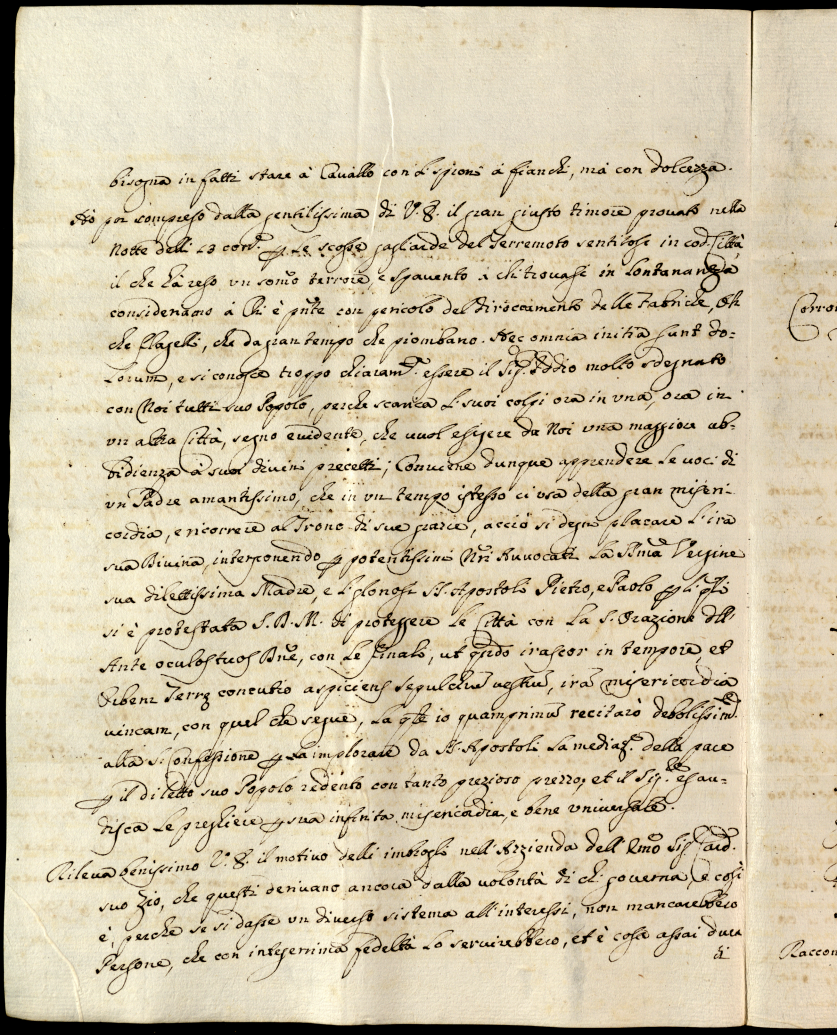 bisogna in fatti stare à Cavallo con li sproni à fianchi, ma con dolcezza.
Hò poi compreso dalla gentilissima di V. S. il gran giusto timore provato nella
Notte delli 23 corr.e p le scosse gagliarde del Terremoto sentitosi in cod.a Città
il che hà reso un somo terrore, e spavento à chi trovasi in lontananza
consideriamo à Chi è pnte con pericolo del diroccamento delle fabriche, Oh
che flagelli, che da gran tempo che piombano. Hec omnia initia sunt do=
lorum, e si conosce troppo chiaram.e essere il Sig.r Iddio molto sdegnato
con Noi tutti suo Popolo, perche scarica li suoi colpi ora in una, ora in
un altra Città, segno evidente, che vuol esigere da Noi una maggiore ub=
bidienza à suoi divini precetti; Conviene dunque apprendere le voci di
un Padre amantissimo, che in un tempo istesso ci usa della gran miseri-
cordia, e ricorrere al Trono di sue grazie, acciò si degni placare l'ira
sua Divina, interponendo p potentissimi Nri Avvocati la Sma Vergine
sua dilettissima Madre, e li gloriosi SS. Apostoli Pietro, e Paolo p li qli
si è protestata S. D. M. di proteggere le Città con la S. Orazione dell'
Ante oculos tuos Dne, con le finali, ut qndo irascor in tempore, et
Terre concutio aspiciens sepulchra vestra, ira misericordia
vincam, con quel che segue, la qle io quamprimum recitarò debolissim.e
alla S. Confessione p la implorare da SS. Apostoli la mediaz.e della pace
p il diletto suo Popolo redento con tanto prezioso prezzo, et il Sig.re esau=
disca le preghiere p sua infinita misericordia, e bene universale.
Rileva benissimo V. S. il motivo delli imbrogli nell'Azzienda dell'Emo Sig.r Card.
suo Zio, che questi derivano ancora dalla volontà di chi governa, e così
è, perche se si dasse un diverso sistema all'interessi, non mancarebbero
Persone, che con integerrima fedeltà lo servirebbero, et è cosa assai dura
di